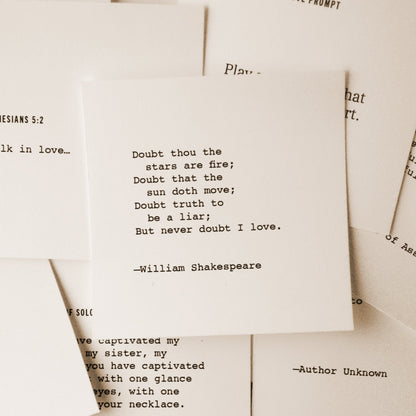 PROMPT
HESIANS 5:2
lk in love…
Play
hat
rt.
Doubt thou the
stars are fire;
Doubt that the
sun doth move;
Doubt truth to
be a liar;
But never doubt I love.
—William Shakespeare
of Ass
F SOLO
ve captivated my
my sister, my
you have captivated
with one glance
eyes, with one
your necklace.
to
—Author Unknown